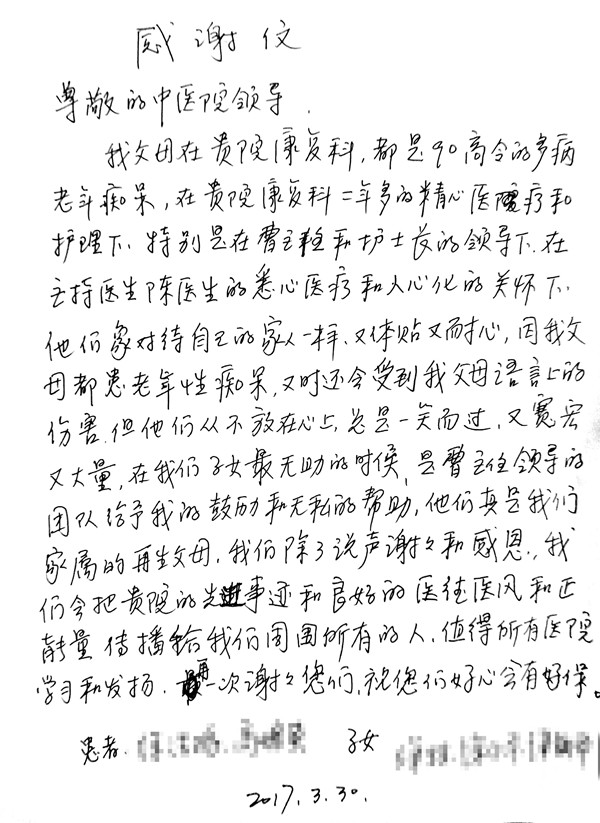 感谢信
尊敬的中医院领导.
我父母在贵院康复科,都是90高令的多病
老年痴呆,在贵院康复科二年多的精心医疗和
护理下.特别是在曹主任和护士长的领导下.在
主持医生陈医生的悉心医疗和人心化的关怀下.
他们象对待自己的家人一样.又体贴又而讨心,因我父
母都患老年性痴呆,又时还会受到我父母语言上的
伤害.但他们从不放在心上,总是一笑而过,又宽宏
又大量,在我们子女最无助的时候,是曹主任领导的
团队给予我的鼓励和无私的帮助,他们真是我们
家属的再生父母.我们除了说声谢谢和感恩.,我
们会把贵院的先进事迹和良好的医德医风和正
能量传播给我们周围所有的人.值得所有医院
学习和发扬.再一次谢谢您们,祝您们好心会有好保。
患者: 子女
2017.3.30.